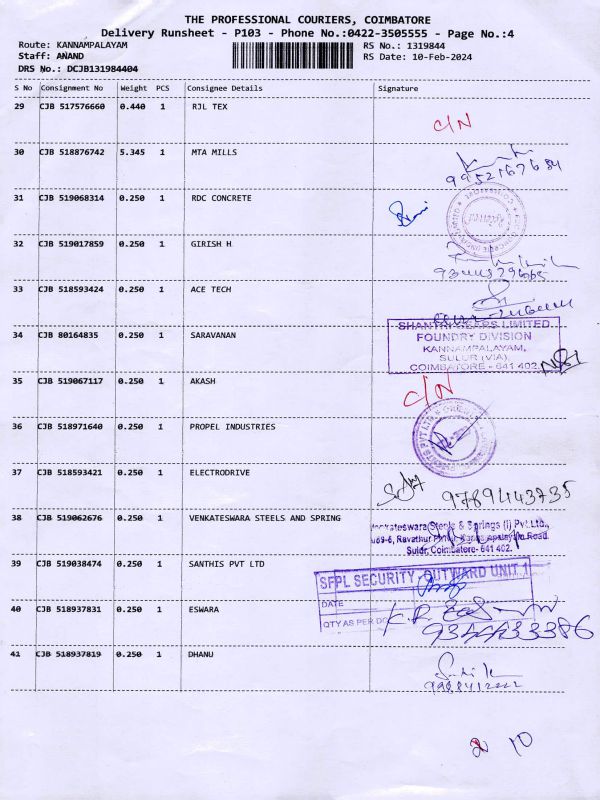 THE PROFESSIONAL COURIERS, COIMBATORE
Delivery Runsheet - P103 - Phone No.:0422-3505555 - Page No.:4
Route: KANNAMPALAYAM RS No.: 1319844
Staff: ANAND RS Date: 10-Feb-2024
DRS No.: DCJB131984404
S No Consignment No Weight PCS Consignee Details Signature
29 CJB 517576660 0.440 1 RJL TEX
C/N
30 CJB 518876742 5.345 1 MTA MILLS
9952167684
31 CJB 519068314 0.250 1 RDC CONCRETE
32 CJB 519017859 0.250 1 GIRISH H
33 CJB 518593424 0.250 1 ACE TECH
34 CJB 80164835 0.250 1 SARAVANAN
SHANTHI GEARS LIMITED
FOUNDRY DIVISION
KANNAMPALAYAM,
SULUR (VIA),
COIMBATORE - 641 402.
35 CJB 519067117 0.250 1 AKASH
C/N
36 CJB 518971640 0.250 1 PROPEL INDUSTRIES
37 CJB 518593421 0.250 1 ELECTRODRIVE
9789443735
38 CJB 519062676 0.250 1 VENKATESWARA STEELS AND SPRING
Venkateswara Steels & Springs (i) Pvt.Ltd.,
Ravathur Road.
Sulur, Coimbatore- 641 402.
39 CJB 519038474 0.250 1 SANTHIS PVT LTD
SFPL SECURITY OUTWARD UNIT 1
DATE
40 CJB 518937831 0.250 1 ESWARA
QTY AS PER DC
9344433386
41 CJB 518937819 0.250 1 DHANU
10